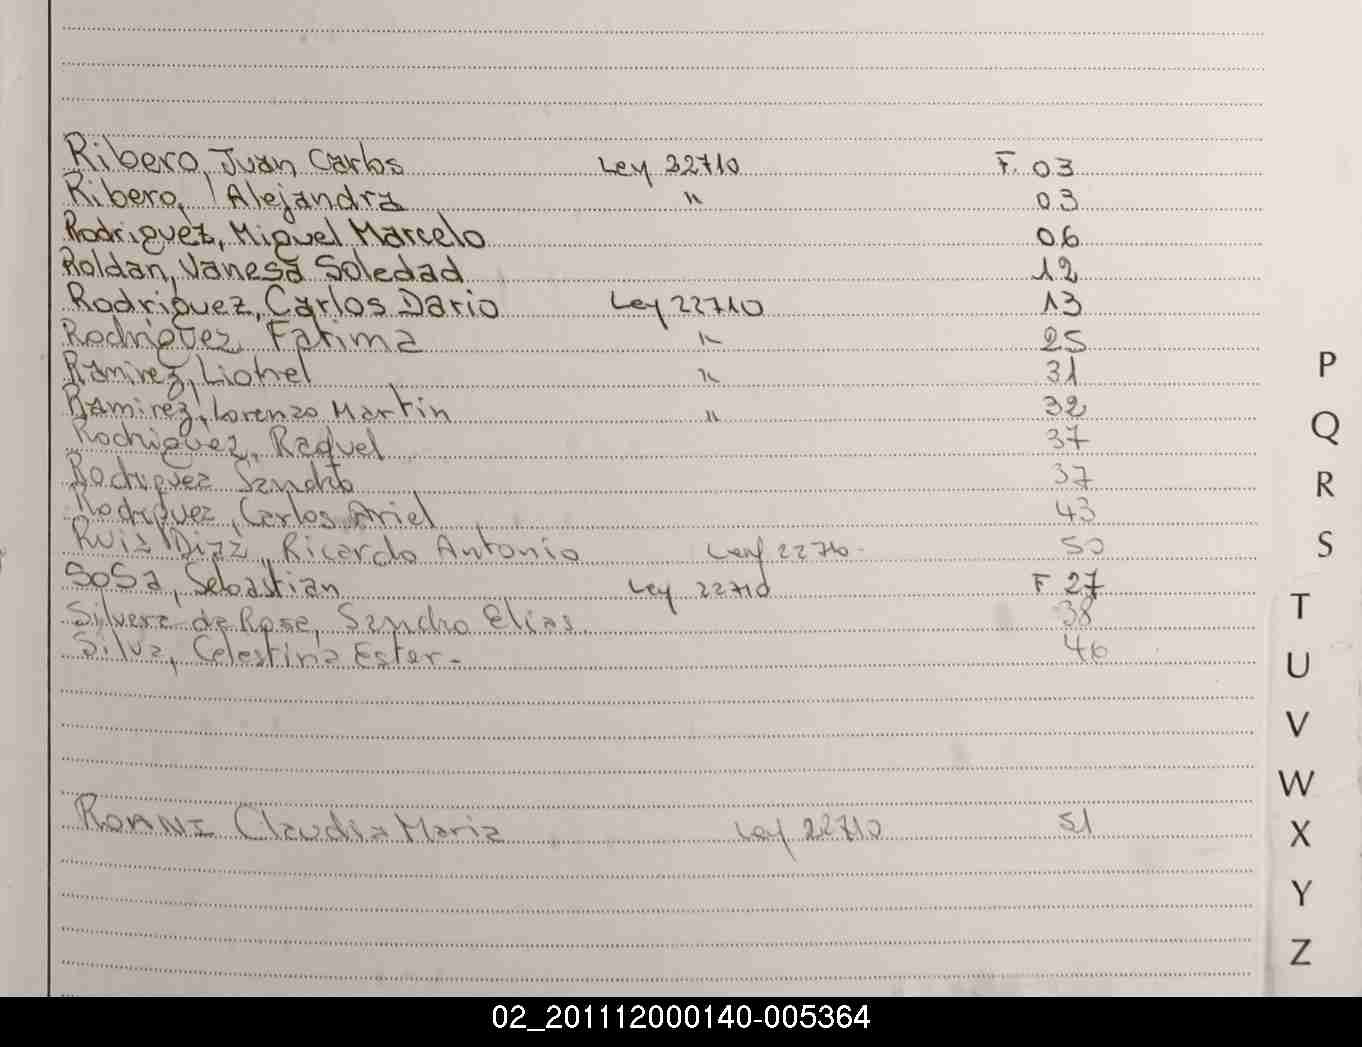 Ribero, Juan Carlos Ley 22710 F. 03
Ribero, Alejandra " 03
Rodriguez, Miguel Marcelo 06
Roldan, Vanesa Soledad 12
Rodriguez, Carlos Dario Ley 22710 13
Rodriguez Fatima " 25
Ramirez, Lionel " 31
Ramirez, Lorenzo Martin " 32
Rodriguez, Raquel 37
Rodriguez Sandro 37
Rodriguez, Carlos Ariel 43
Ruiz Diaz, Ricardo Antonio Ley 22710. 50
Sosa, Sebastian Ley 22710 F 27
Silvera de Rose, Sandro Elias. 38
Silva, Celestina Ester. 46
Roanni Claudia Maria Ley 22710 51
P
Q
R
S
T
U
V
W
X
Y
Z
02_201112000140-005364